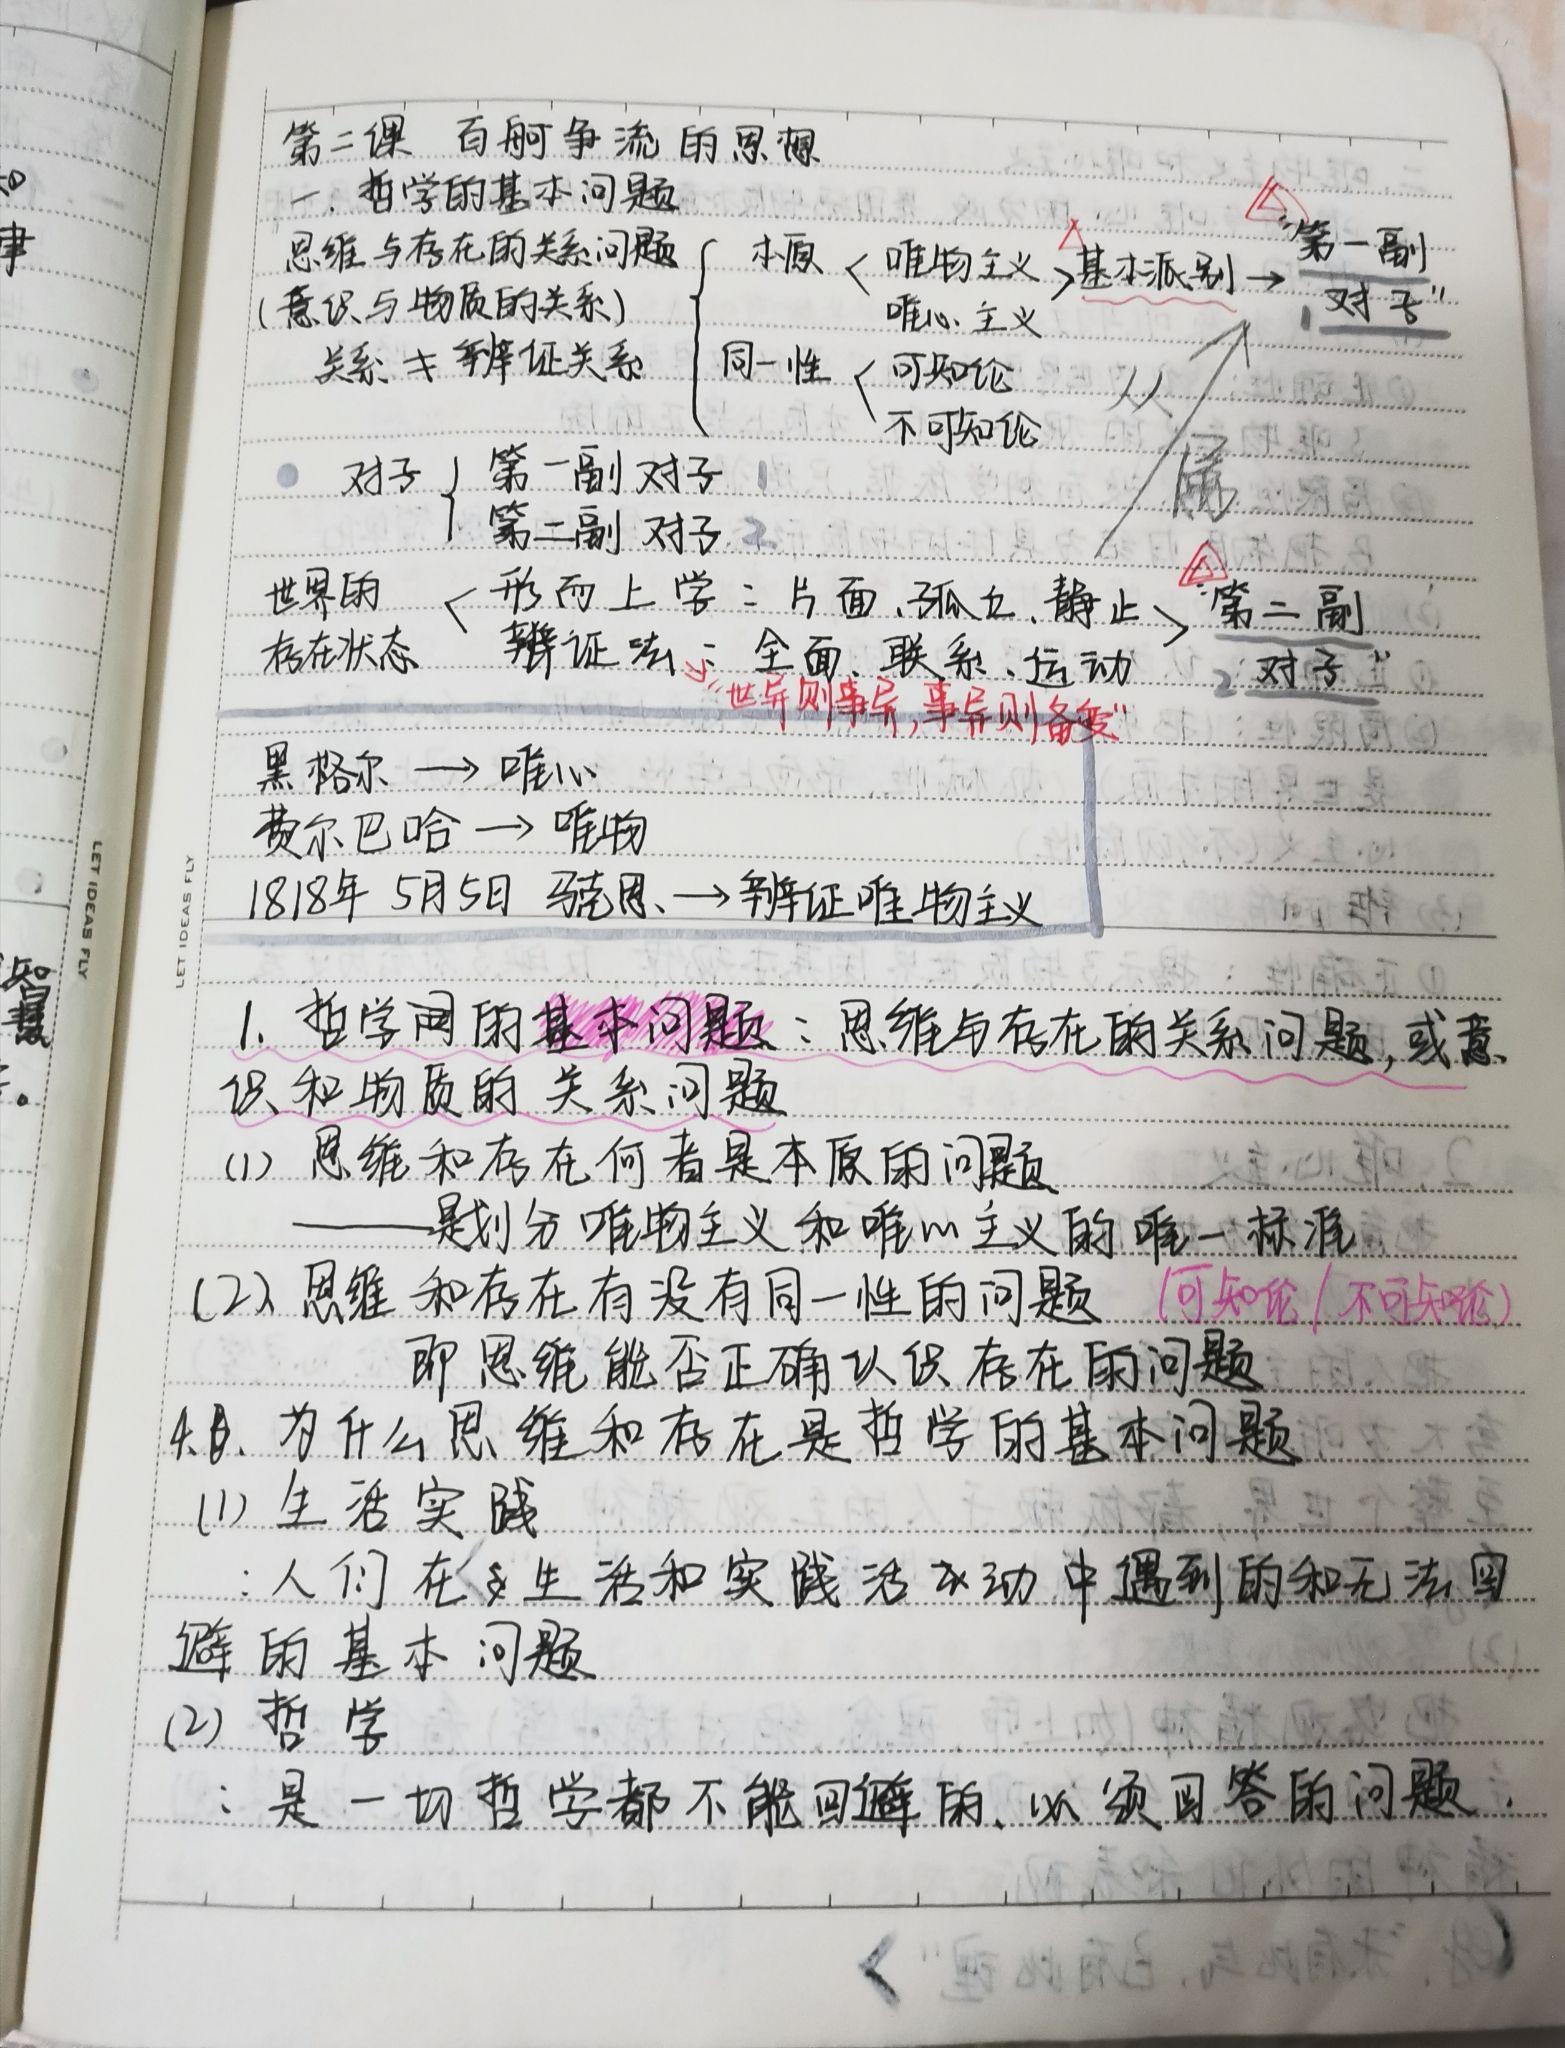 第二课 百舸争流的思想
一. 哲学的基本问题
思维与存在的关系问题
(意识与物质的关系)
关系 ≠ 辨证关系
本原
唯物主义
唯心主义
基本派别 →
"第一副
对子"
1
同一性
可知论
不可知论
从属
对子
第一副对子 1
第二副对子 2
世界的
存在状态
形而上学：片面、孤立、静止
辩证法：全面、联系、运动
"第二副
2 对子"
"世异则事异，事异则备变"
黑格尔 → 唯心
费尔巴哈 → 唯物
1818年 5月5日 马克思 → 辨证唯物主义
1. 哲学的基本问题：思维与存在的关系问题, 或意
识和物质的关系问题
(1) 思维和存在何者是本原的问题
——是划分唯物主义和唯心主义的唯一标准
(2) 思维和存在有没有同一性的问题 (可知论/不可知论)
即思维能否正确认识存在的问题
为什么思维和存在是哲学的基本问题
(1) 生活实践
：人们在生活和实践活动中遇到的和无法回
避的基本问题
(2) 哲学
：是一切哲学都不能回避的、必须回答的问题.
LET IDEAS FLY
LET IDEAS FLY